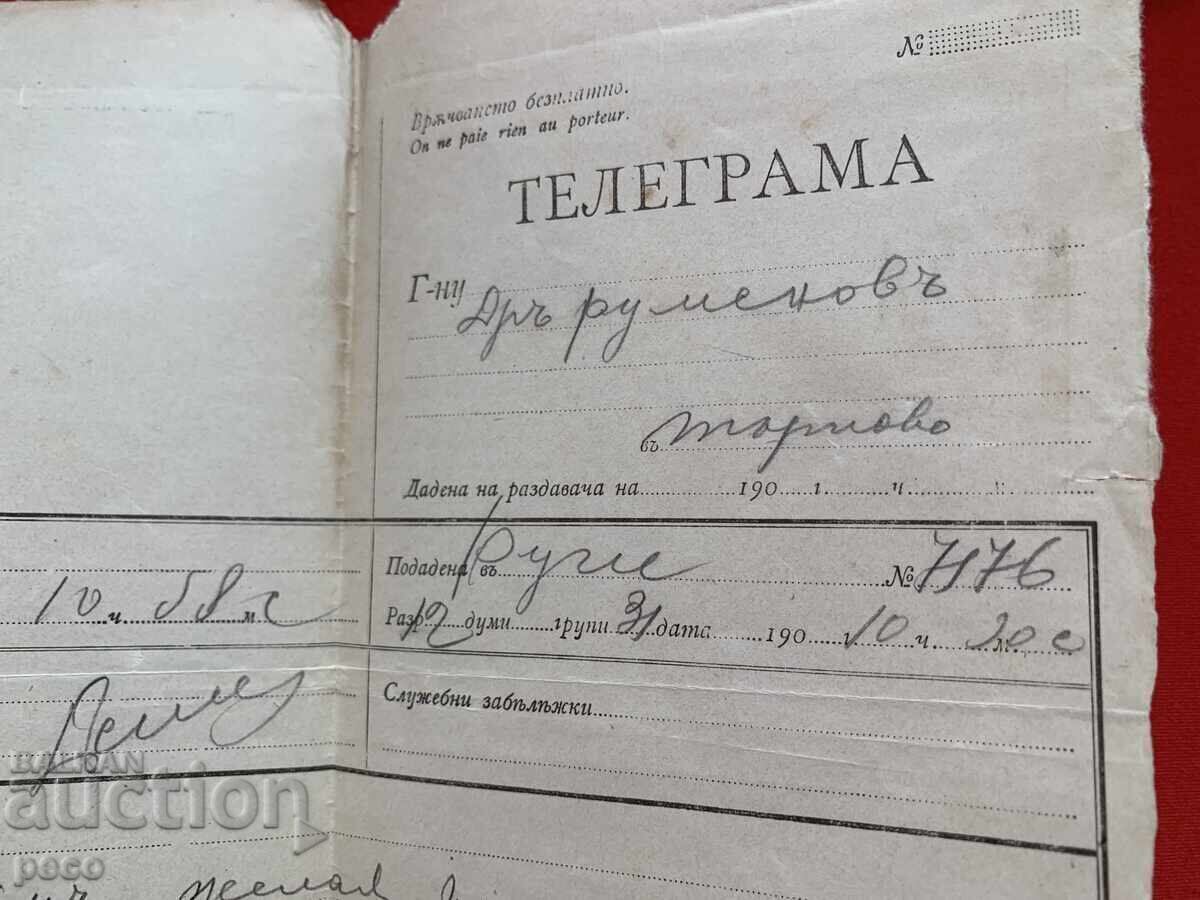 №
Врѫчването безплатно.
On ne paie rien au porteur.
ТЕЛЕГРАМА
Г-ну Дръ Руменовъ
въ Торново
Дадена на раздавача на 190 г. ч. м.
Подадена въ Русе № 7176
Разр. 12 думи групи 31 дата 190 г. 10 ч. 20 м. с
10 ч. 58 м. с
Служебни забѣлѣжки
желая
BALKAN
auction
peco